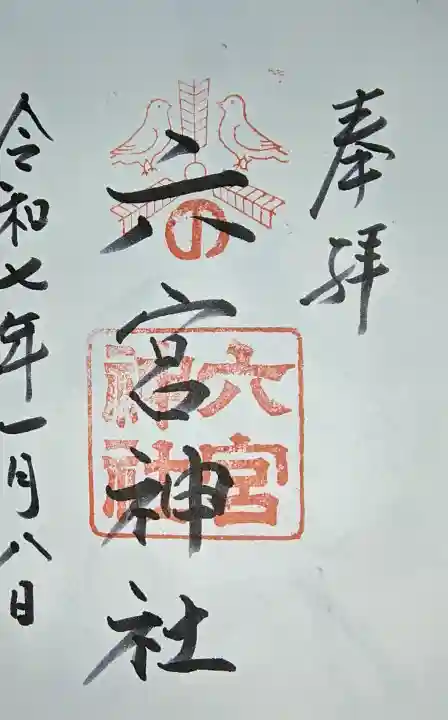 奉拝
六
の
宮神社
六宮
神社
令和七年一月八日